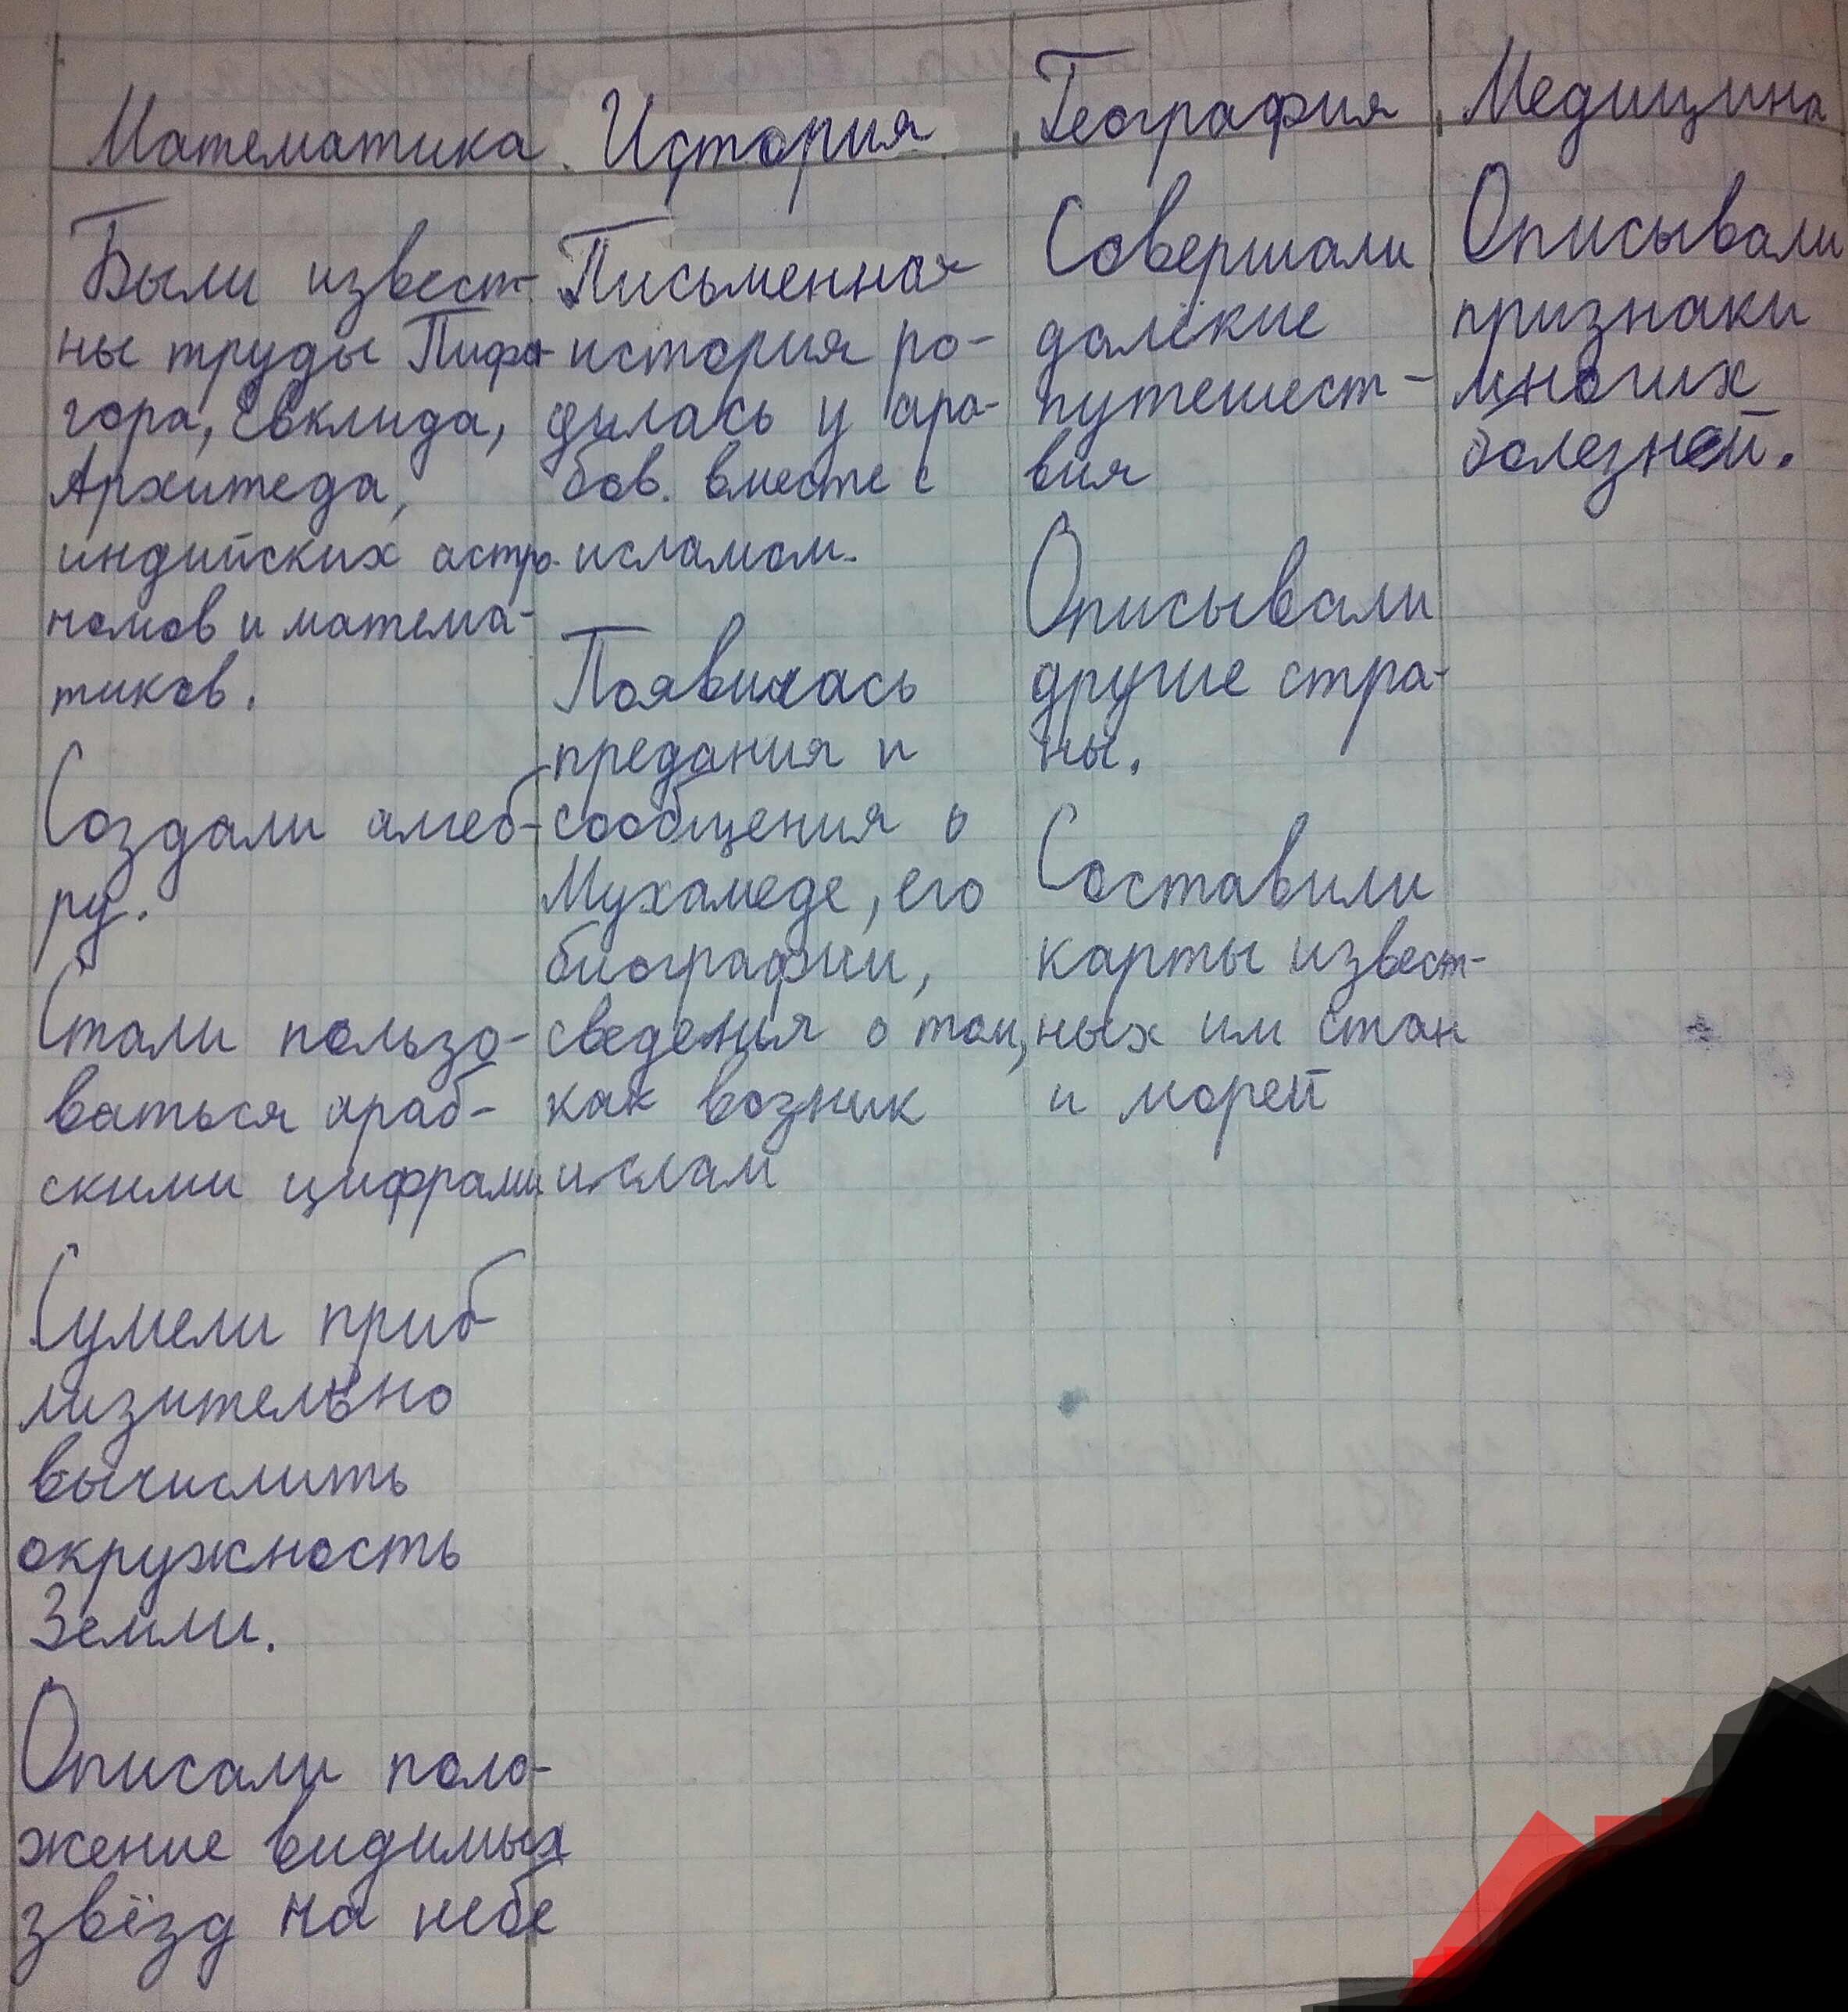 Математика
Были извест-
ны труды Пифа-
гора, Евклида,
Архитеда,
индийских астро-
номов и матема-
тиков.
Создали алгеб-
ру.
Стали пользо-
ваться араб-
скими цифрами
Сумели приб
лизительно
вычислить
окружность
Земли.
Описали поло-
жение видимых
звёзд на небе
История
Письменная
история ро-
дилась у ара-
бов. вместе с
исламом.
Появилась
предания и
сообщения о
Мухамеде, его
биографии,
сведения о том,
как возник
ислам
География
Совершали
далёкие
путешест-
вия
Описывали
другие стра-
ны.
Составили
карты извест-
ных им стан
и морей
Медицина
Описывали
признаки
многих
болезней.